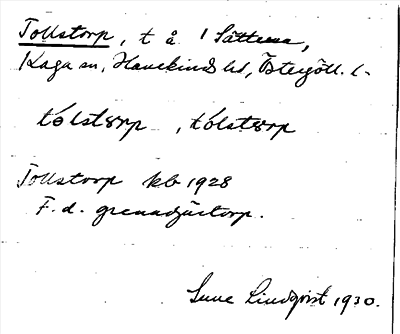 Tollstorp, t å 1 Sättuna,
Kaga sn, Hanekinds hd, Östergötl. l.
tólstorp, tólstorp
Tollstorp kb 1928
F. d. grenadjärtorp.
Sune Lindqvist 1930.